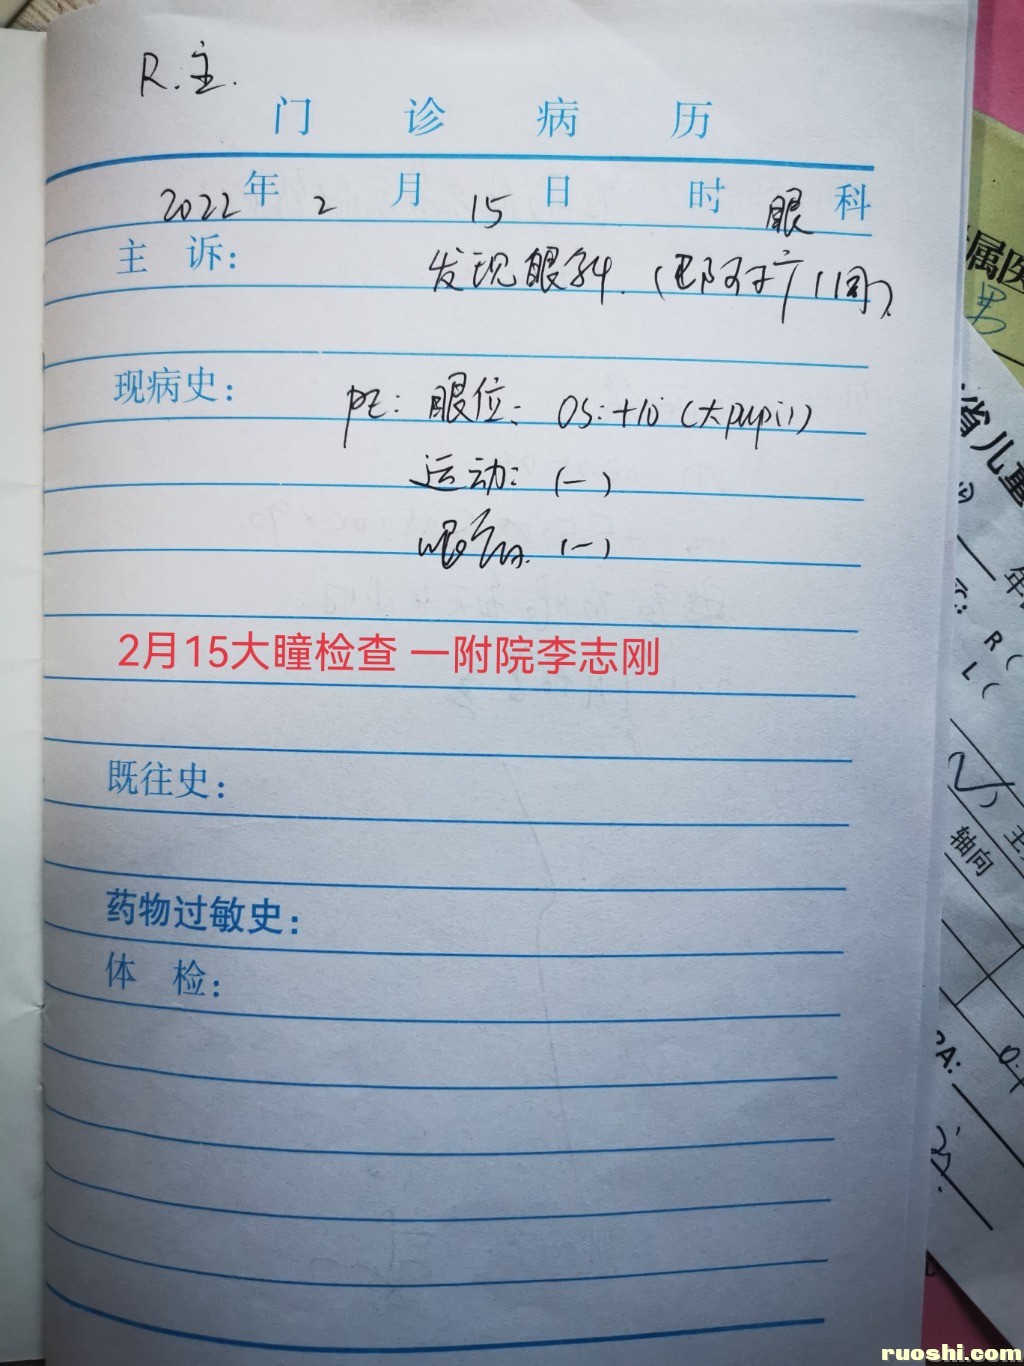 R.主.
门诊病历
2022年2月15日 时 眼科
主 诉: 发现眼斜.(已阿托广11周)
现病史: PE: 眼位: OS:+10°(大pupil)
运动: (一)
眼底 (一)
2月15大瞳检查 一附院李志刚
既往史:
药物过敏史:
体 检:
属医
男
省儿童
年
R(
L(
主
轴向
PA:
ruoshi.com